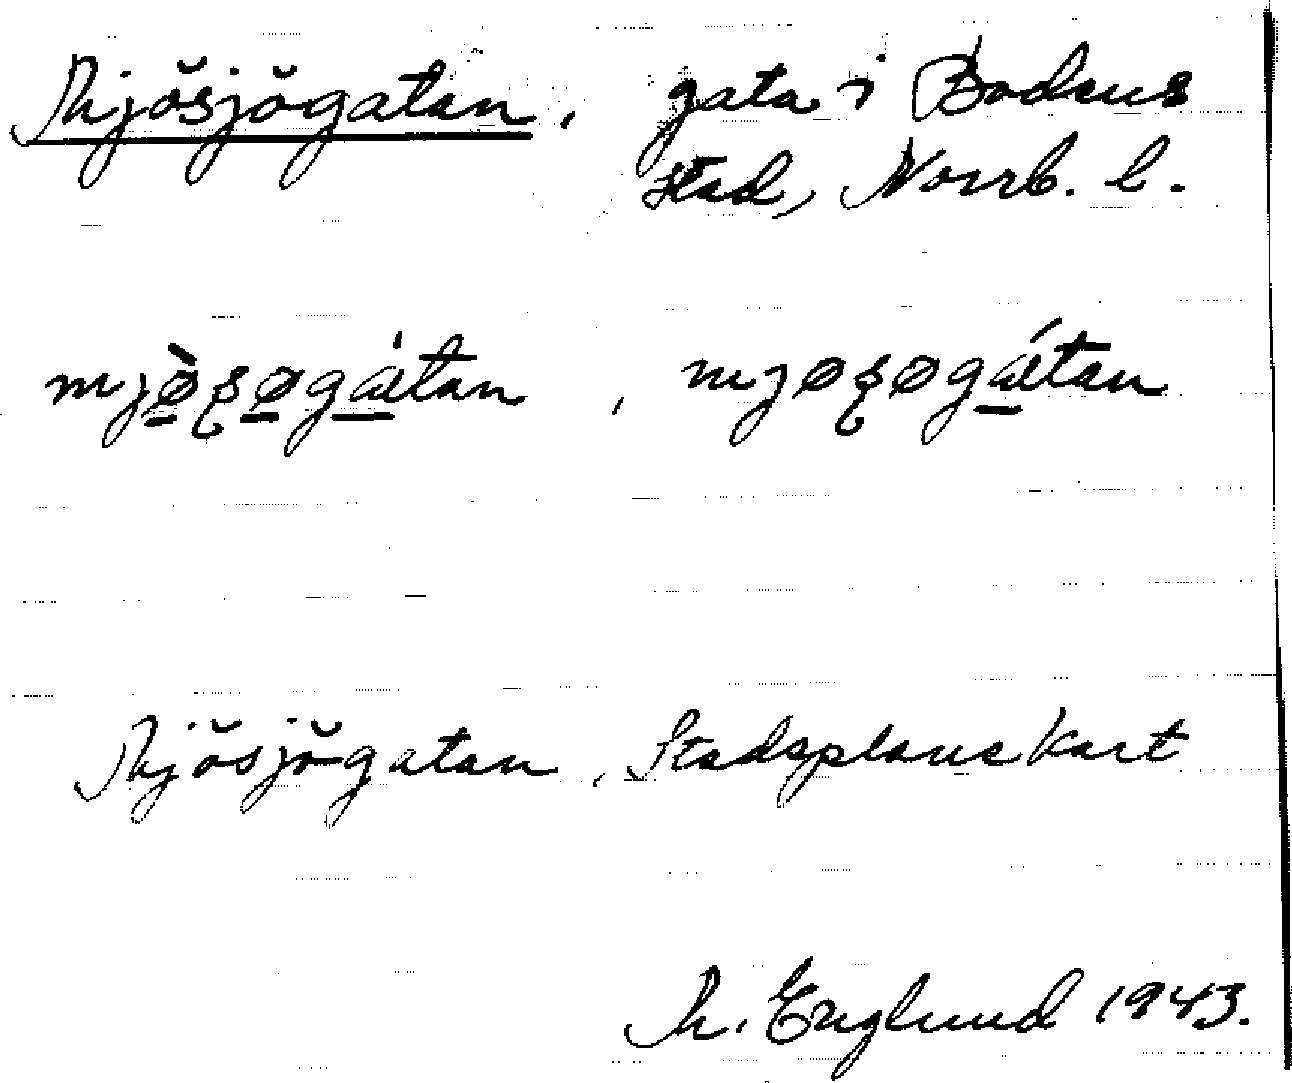 Mjösjögatan, gata i Bodens
stad, Norrb. l.
mjø̀søgátan, mjøsøgátan
Mjösjögatan, Stadsplanekart
M. Englund 1943.